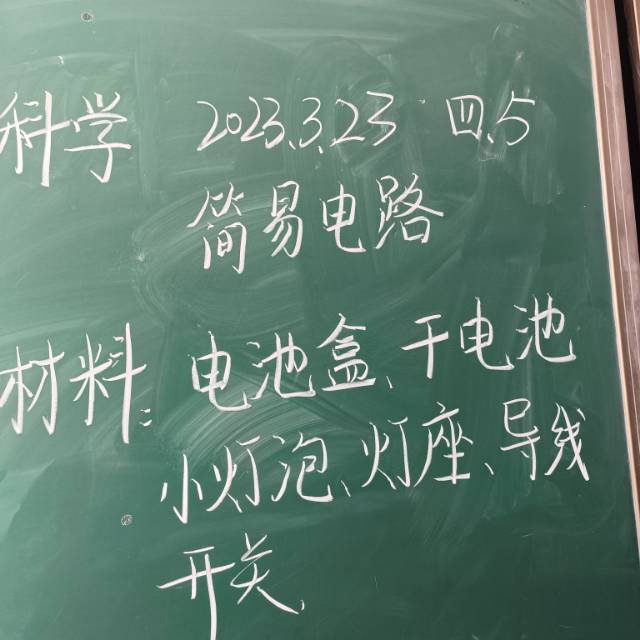 科学 2023.3.23 四.5
简易电路
材料：电池盒、干电池
小灯泡、灯座、导线
开关、